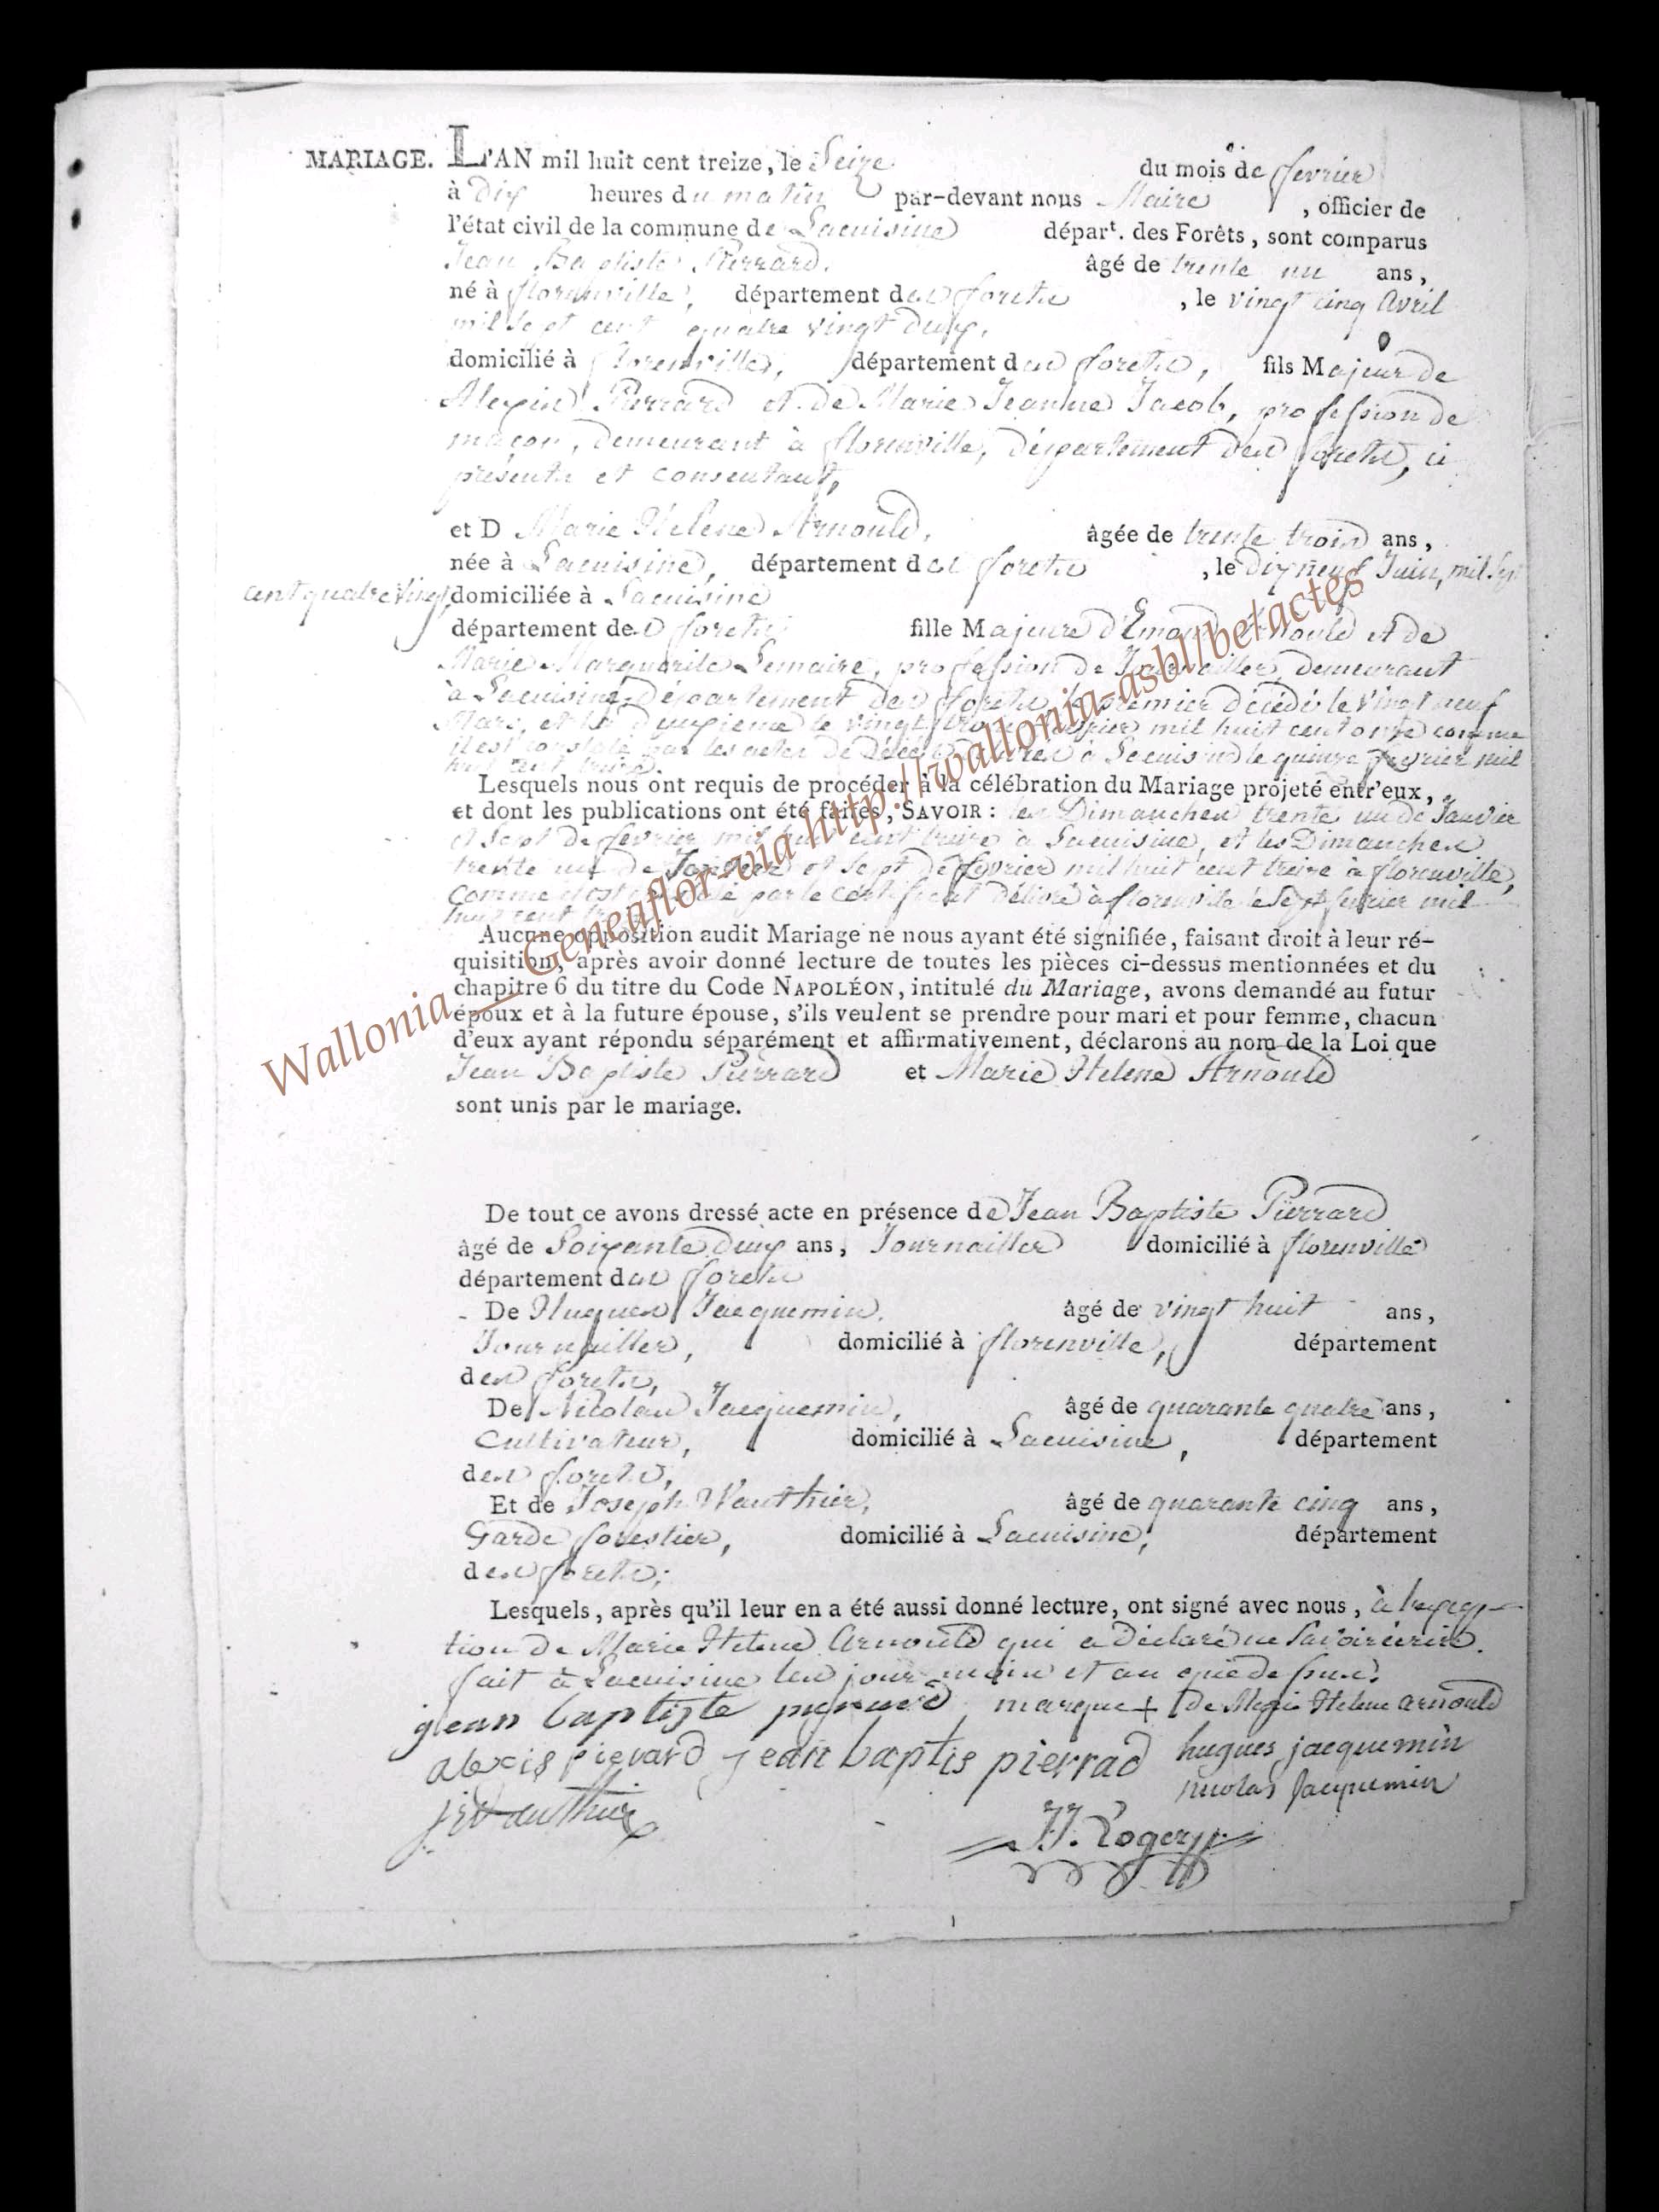 MARIAGE. L'AN mil huit cent treize, le Seize du mois de fevrier
à dix heures du matin par-devant nous Maire, officier de
l'état civil de la commune de Lacuisine dépar<sup>t</sup>. des Forêts, sont comparus
Jean Baptiste Pierrard. âgé de trente un ans,
né à florenville, département des forets, le vingt cinq Avril
mil sept cent quatre vingt deux,
domicilié à florenville, département des forets, fils Majeur de
Alexis Pierrard et de Marie Jeanne Jacob, profession de
maçon, demeurant à florenville, département des forets, ci
présents et consentant,
et D Marie Helene Arnould, âgée de trente trois ans,
née à Lacuisine, département des forets, le dix neuf Juin, mil sept
cent quatre vingt, domiciliée à Lacuisine
département des forets fille Majeure d'Emond Arnould et de
Marie Marguerite Lemaire, profession de Journailler, demeurant
à Lacuisine, département des forets, le premier décédé le vingt neuf
Mars, et la deuxieme le vingt trois mil huit cent onze comme
il est constaté par les actes de décès délivrés à Lacuisine le quinze fevrier mil
huit cent treize.
Lesquels nous ont requis de procéder à la célébration du Mariage projeté entr'eux,
et dont les publications ont été faites, SAVOIR : les Dimanches trente un de Janvier
et sept de fevrier mil huit cent treize à Lacuisine, et les Dimanches
trente un de Janvier et sept de fevrier mil huit cent treize à florenville,
comme il est constaté par le certificat délivré à florenville le sept fevrier mil
huit cent treize
Aucune opposition audit Mariage ne nous ayant été signifiée, faisant droit à leur ré-
quisition, après avoir donné lecture de toutes les pièces ci-dessus mentionnées et du
chapitre 6 du titre du Code NAPOLÉON, intitulé du Mariage, avons demandé au futur
époux et à la future épouse, s'ils veulent se prendre pour mari et pour femme, chacun
d'eux ayant répondu séparément et affirmativement, déclarons au nom de la Loi que
Jean Baptiste Pierrard et Marie Helene Arnould
sont unis par le mariage.
De tout ce avons dressé acte en présence de Jean Baptiste Pierrard
âgé de Soixante deux ans, Journailler domicilié à florenville
département des forets
De Hugues Jacquemin. âgé de vingt huit ans,
Journailler, domicilié à florenville, département
des forets,
De Nicolas Jacquemin, âgé de quarante quatre ans,
Cultivateur, domicilié à Lacuisine, département
des forets,
Et de Joseph Wauthier, âgé de quarante cinq ans,
Garde forestier, domicilié à Lacuisine, département
des forets;
Lesquels, après qu'il leur en a été aussi donné lecture, ont signé avec nous, à l'excep-
tion de Marie Helene Arnould qui a déclaré ne savoir écrire.
fait à Lacuisine les jour mois et an que dessus.
gean baptiste pierard marque + de Marie Helene Arnould
alexis pierard jean baptis pierrad hugues jacquemin
nicolas Jacquemin
J Wauthier
JJ. Rogery
Wallonia_Geneaflor-via http://wallonia-asbl/be/actes